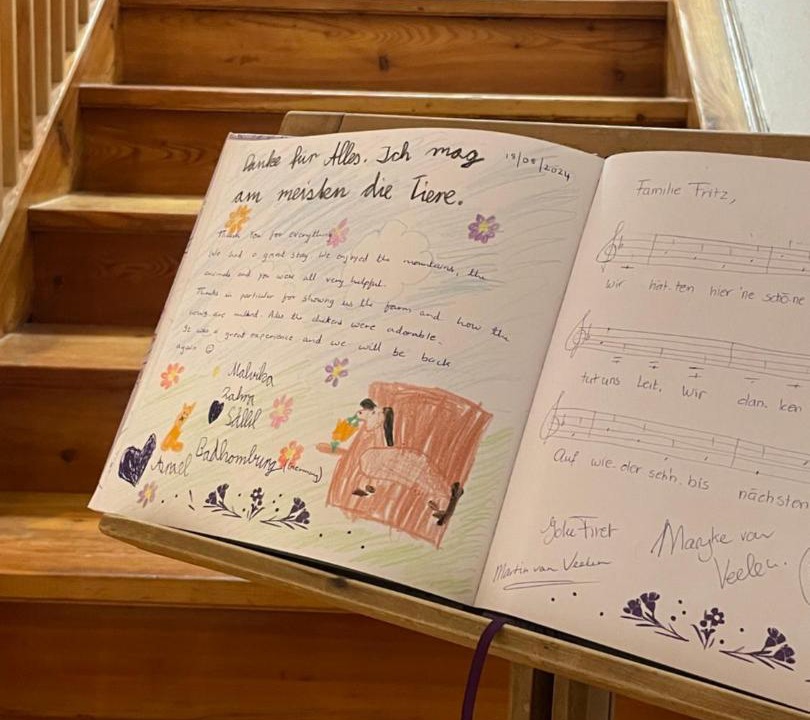 Danke für Alles. Ich mag
18/08/2024
am meisten die Tiere.
Thank You for everything
We had a great stay. We enjoyed the mountains, the
animals and you were all very helpful.
Thanks in particular for showing us the farm and how the
cows are milked. Also the chickens were adorable.
It was a great experience and we will be back
again ☺
Malvika
Zahra
Sallil
Badhomburg (Germany)
Familie Fritz,
wir hat-ten hier 'ne schö-ne
tut uns Leit. Wir dan-ken
Auf wie-der sehn. bis nächsten
Martin van Veelen
Maryke van
Veelen.